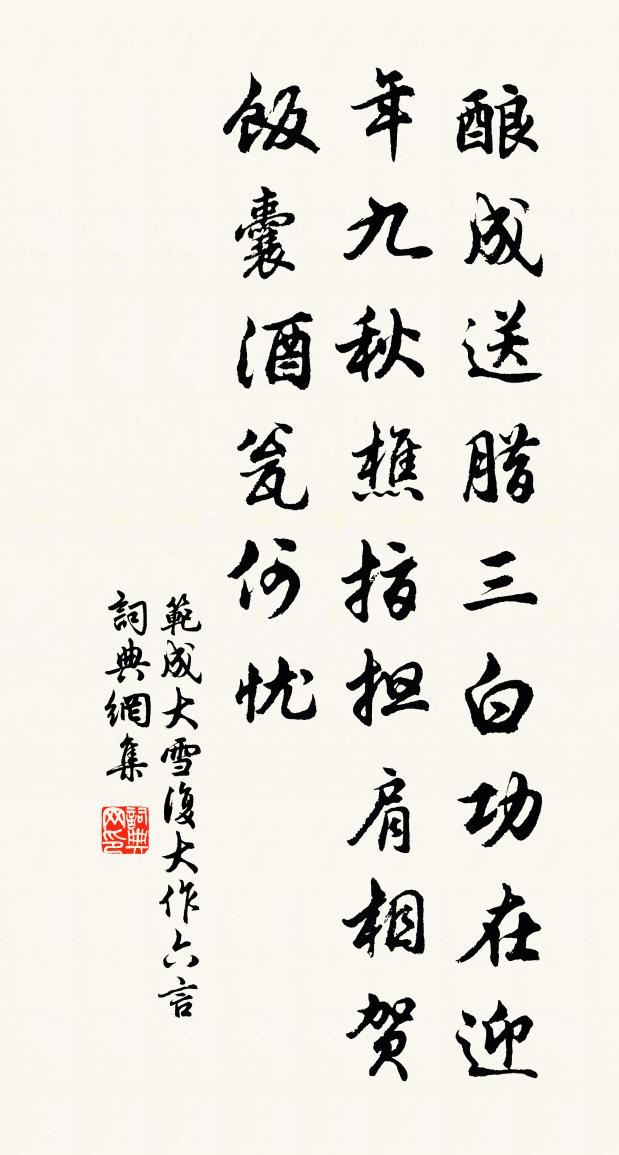 酿成送腊三白功在迎
年九秋樵指担肩相贺
飯囊酒瓮何忧
範成大雪復大作六言
詞典網集
詞典网印